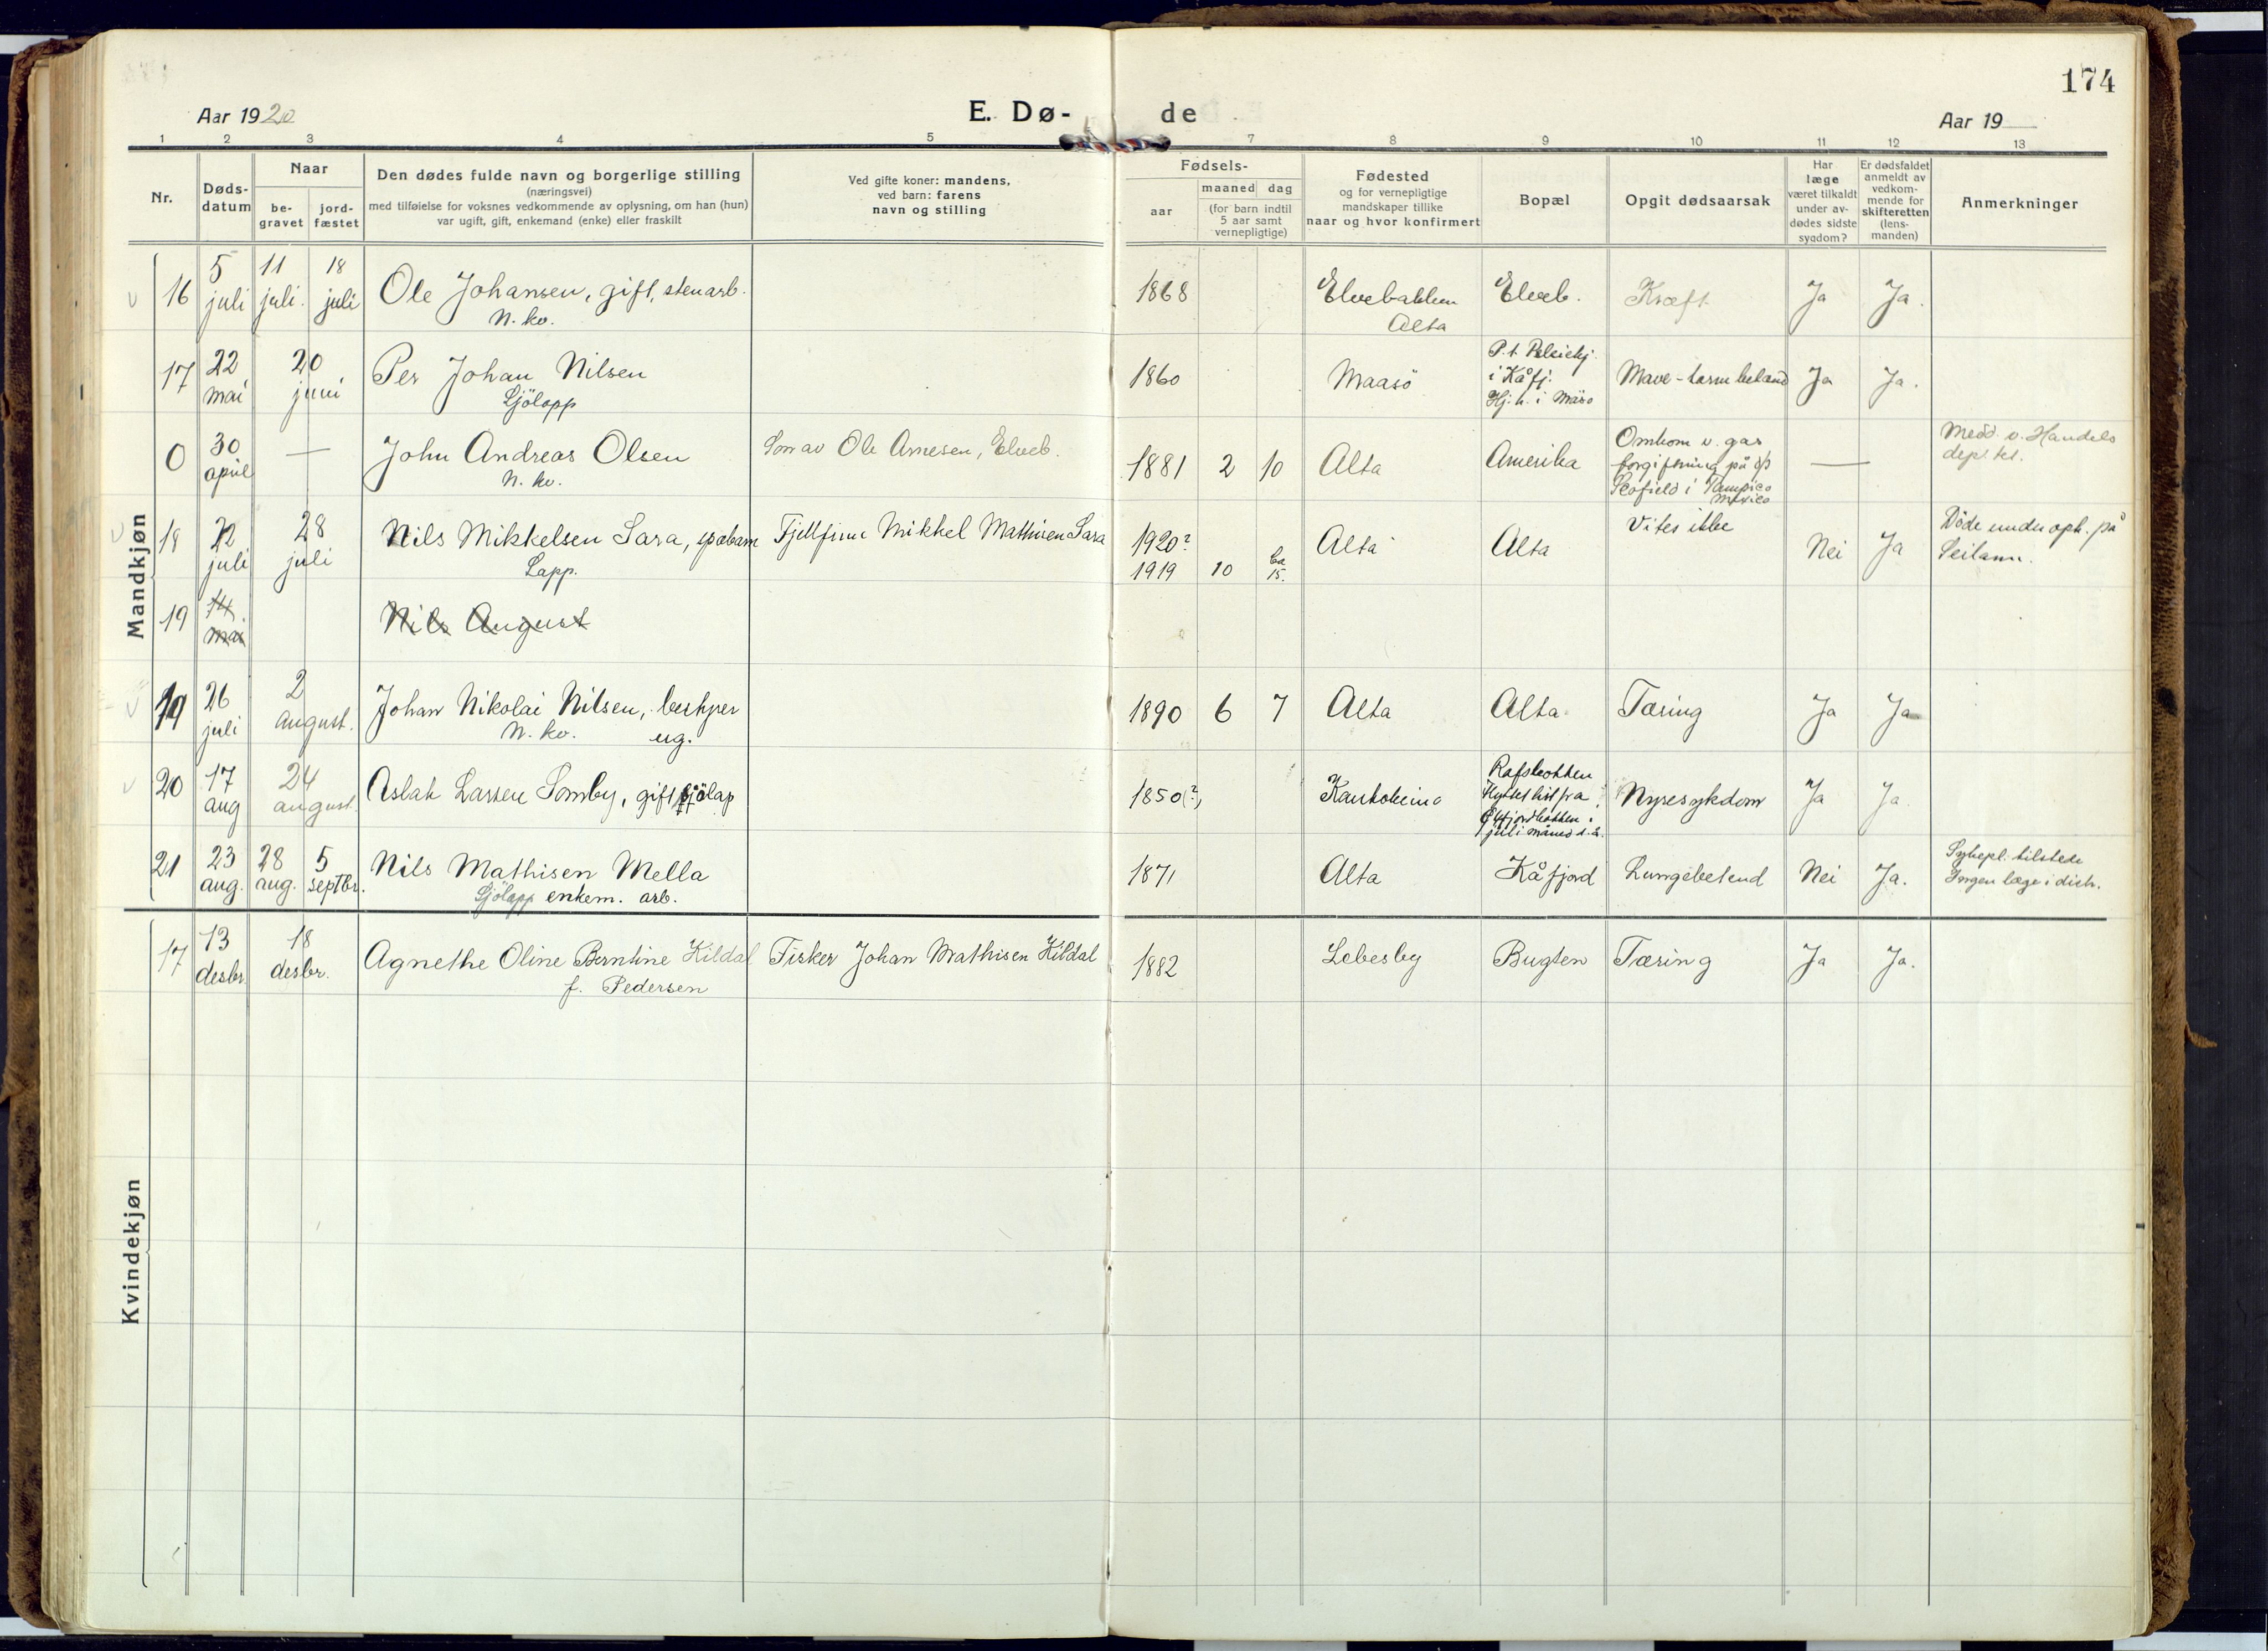 174
Aar 1920
E. Dø-
de
Aar 19
1 2 3 4 5 7 8 9 10 11 12 13
Nr.
Døds-
datum
Naar
be-
gravet
jord-
fæstet
Den dødes fulde navn og borgerlige stilling
(næringsvei)
med tilføielse for voksnes vedkommende av oplysning, om han (hun)
var ugift, gift, enkemand (enke) eller fraskilt
Ved gifte koner: mandens,
ved barn: farens
navn og stilling
Fødsels-
aar
maaned dag
(for barn indtil
5 aar samt
vernepligtige)
Fødested
og for vernepligtige
mandskaper tillike
naar og hvor konfirmert
Bopæl
Opgit dødsaarsak
Har
læge
været tilkaldt
under av-
dødes sidste
sygdom?
Er dødsfaldet
anmeldt av
vedkom-
mende for
skifteretten
(lens-
manden)
Anmerkninger
Mandkjøn
16 5 juli 11 juli. 18 juli Ole Johansen, gift, stenarb. 1868 Elvebakken Elveb. Kræft Ja Ja.
N. kv. Alta
17 22 mai 20 juni Per Johan Nilsen 1860 Maasö Mave-tarm Ja Ja.
Sjölapp
P. t. Pleiehj.
i Kåfj.
Hj. h. i Måsö
0 30 april — John Andreas Olsen Søn av Ole Arnesen, Elveb. 1881 2 10 Alta Amerika —
N. kv.
Omkom v. gas
forgiftning på d/s
Scofield i Tampico
Mexico
Medd. v. Handels
dept.
18 22 juli 28 juli Nils Mikkelsen Sara, spæbarn Fjellfinn Mikkel Mathisen Sara 1920? Alta Alta Vites ikke Nei Ja
Lapp. 1919 10 ca 15.
Döde under oph. på
Seiland.
19 14. mai Nils August
19 26 juli 2 august. Johan Nikolai Nilsen, 1890 6 7 Alta Alta Tæring Ja Ja
N. kv. ug.
20 17 aug 24 august. Aslak Larsen Somby, gift sjölap 1850(?) Kautokeino Nyresykdom Ja Ja
Rafsbotten
flyttet hit fra
juli måned d. å.
21 23 aug. 28 aug. 5 septbr. Nils Mathisen Mella 1871 Alta Kåfjord Lungebetend Nei Ja.
Sjölapp enkem. arb.
Sykepl. tilstede
Ingen læge i distr.
Kvindekjøn
17 13 desbr. 18 desbr. Agnethe Oline Berntine Kildal Fisker Johan Mathisen Kildal 1882 Lebesby Bugten Tæring Ja Ja.
f. Pedersen